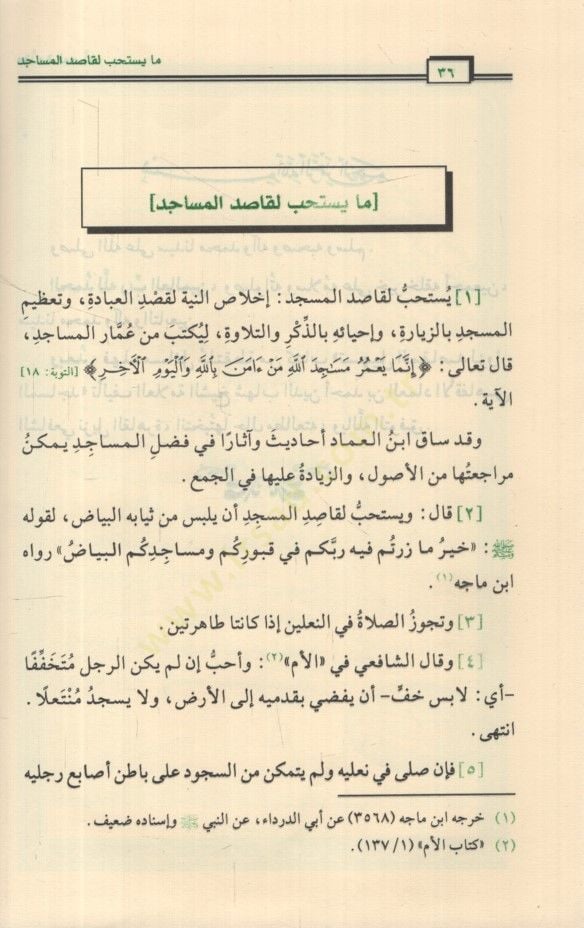 ٣٦
ما يستحب لقاصد المساجد
[ما يستحب لقاصد المساجد]
[١] يُستحبُّ لقاصد المسجد: إخلاص النية لقصْدِ العبادةِ، وتعظيمِ
المسجدِ بالزيارةِ، وإحيائهِ بالذِّكْرِ والتلاوةِ، لِيُكتَبَ من عُمَّار المساجدِ،
قال تعالى: ﴿إِنَّمَا يَعْمُرُ مَسَٰجِدَ اللَّهِ مَنْ ءَامَنَ بِاللَّهِ وَالْيَوْمِ الْآخِرِ﴾ [التوبة: ١٨]
الآية.
وقد ساق ابنُ العماد أحاديثَ وآثارًا في فضلِ المساجدِ يمكنُ
مراجعتُها من الأصول، والزيادةُ عليها في الجمع.
[٢] قال: ويستحبُّ لقاصِدِ المسجدِ أن يلبس من ثيابه البياض، لقوله
ﷺ: «خيرُ ما زرتُم فيه ربَّكم في قبورِكُم ومساجدِكُم البياضُ» رواه
ابن ماجه(١).
[٣] وتجوزُ الصلاةُ في النعلين إذا كانتا طاهرتين.
[٤] وقال الشافعي في «الأم»(٢): وأحبُّ إن لم يكن الرجل مُتَخَفِّفًا
-أي: لابس خفٍّ- أن يفضي بقدميه إلى الأرض، ولا يسجدُ مُنْتَعلًا.
انتهى.
[٥] فإن صلى في نعليه ولم يتمكن من السجود على باطن أصابع رجليه
(١) خرجه ابن ماجه (٣٥٦٨) عن أبي الدرداء، عن النبي ﷺ وإسناده ضعيف.
(٢) «كتاب الأم» (١/ ١٣٧).